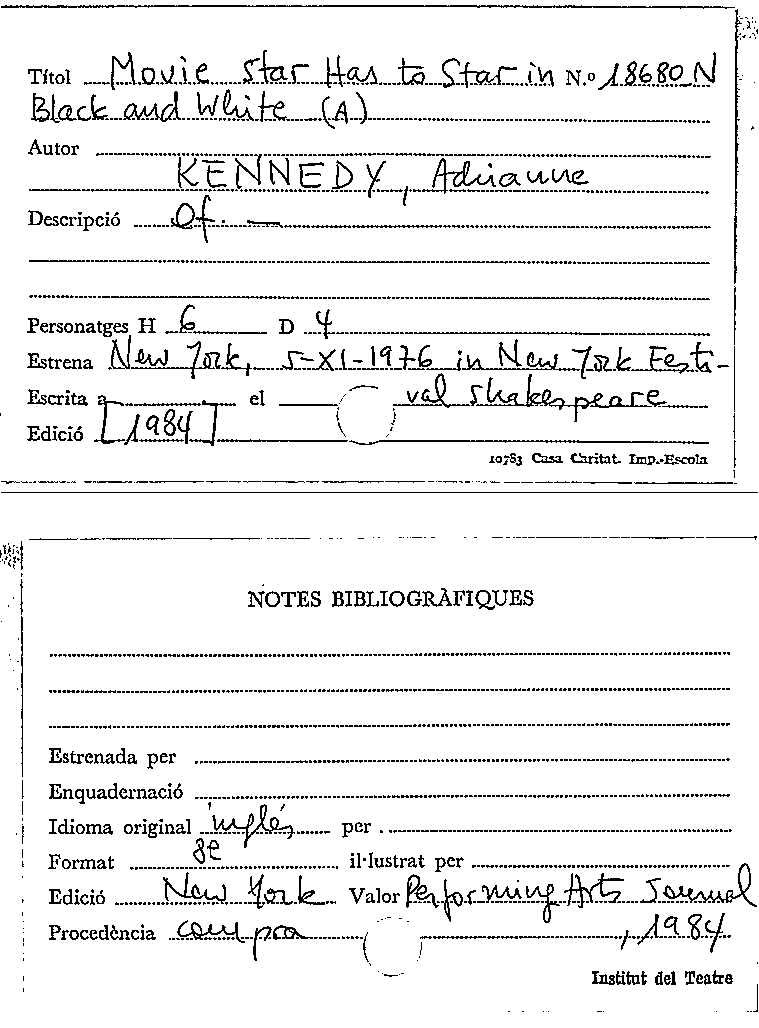 Títol Movie Star Has to Star in N.º 18680 N
Black and White (A)
Autor
KENNEDY, Adrianne
Descripció Of. —
Personatges H 6 D 4
Estrena New York, 5-XI-1976 in New York Festi-
Escrita a el val Shakespeare
Edició [1984]
10783 Casa Caritat. Imp.-Escola
NOTES BIBLIOGRÀFIQUES
Estrenada per
Enquadernació
Idioma original inglés per
Format 8è il·lustrat per
Edició New York Valor Performing Arts Journal
Procedència compra , 1984
Institut del Teatre